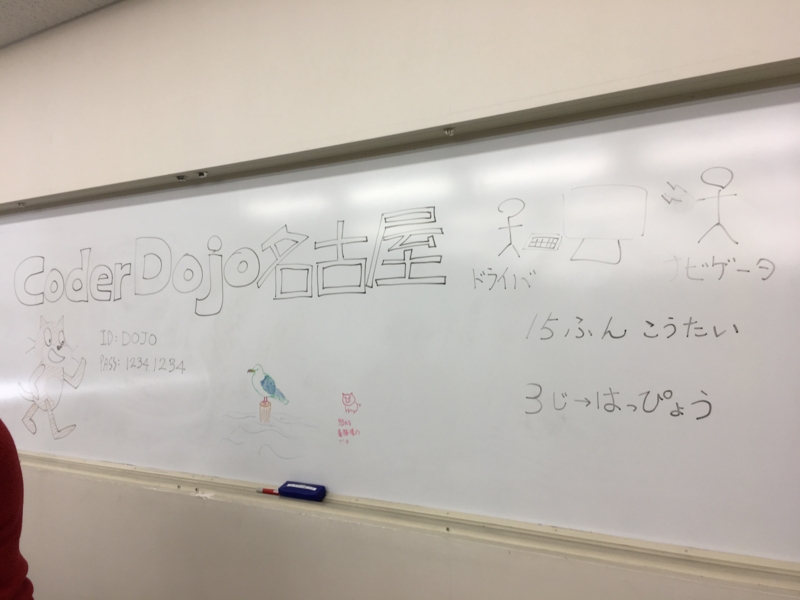 CoderDojo名古屋
ID: DOJO
PASS: 1234 1234
ドライバ
ナビゲータ
15ふん こうたい
3じ→はっぴょう